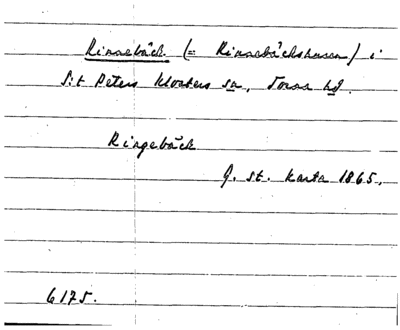 Rinnebäck (= Rinnebäckshusen) i
S:t Peters Klosters sn, Torna hd.
Ringebäck
G. st. karta 1865.
6175.